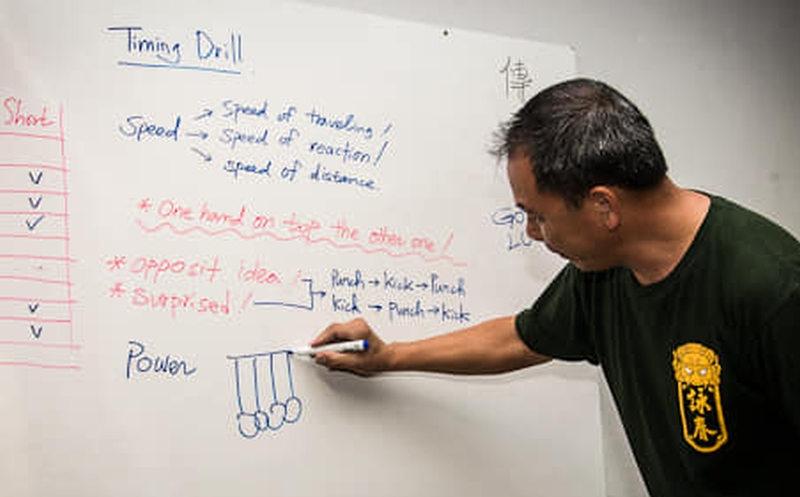 Timing Drill
傳
Short
Speed
Speed of traveling!
Speed of reaction!
speed of distance.
* One hand on top the other one!
* opposit idea!
* Surprised!
Punch → Kick → Punch
Kick → Punch → Kick
Power
詠春